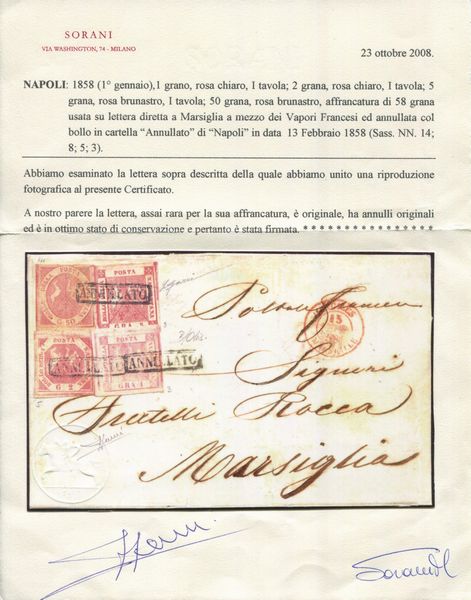 SORANI
VIA WASHINGTON, 74 - MILANO
23 ottobre 2008.
NAPOLI: 1858 (1° gennaio),1 grano, rosa chiaro, I tavola; 2 grana, rosa chiaro, I tavola; 5
grana, rosa brunastro, I tavola; 50 grana, rosa brunastro, affrancatura di 58 grana
usata su lettera diretta a Marsiglia a mezzo dei Vapori Francesi ed annullata col
bollo in cartella "Annullato" di "Napoli" in data 13 Febbraio 1858 (Sass. NN. 14;
8; 5; 3).
Abbiamo esaminato la lettera sopra descritta della quale abbiamo unito una riproduzione
fotografica al presente Certificato.
A nostro parere la lettera, assai rara per la sua affrancatura, è originale, ha annulli originali
ed è in ottimo stato di conservazione e pertanto è stata firmata. * * * * * * * * * * * * * * * *
POSTA
G. 50
GRA
ANNULLATO
POSTA
POSTA
G. 2
GRA 1
ANNULLATO
ANNULLATO
15
Signori
Fratelli Rocca
Marsiglia